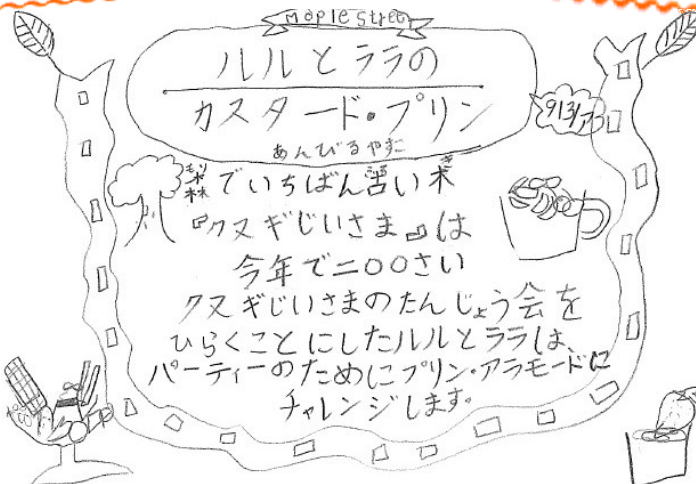 Maple Street
ルルとララの
カスタード・プリン
あんびるやすこ
913/ア
森でいちばん古い木
『クヌギじいさま』は
今年で二〇〇さい
クヌギじいさまのたんじょう会を
ひらくことにしたルルとララは、
パーティーのためにプリン・アラモードに
チャレンジします。